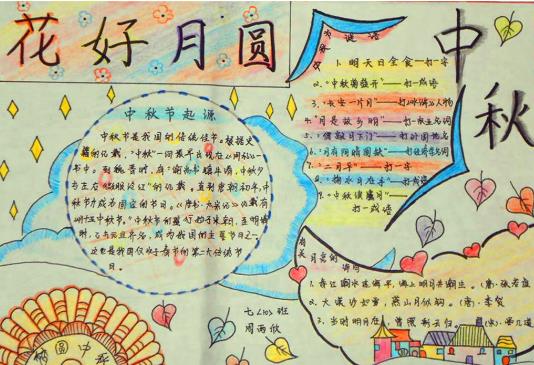 花好月圆
中秋
中秋节起源
中秋节是我国的传统佳节。根据史
籍的记载，“中秋”一词最早出现在《周礼》一
书中。到魏晋时，有“谕尚书镇牛渚，中秋夕
与左右微服泛江”的记载。直到唐朝初年，中
秋节才成为固定的节日。《唐书·太宗记》记载有
“八月十五中秋节”。中秋节的盛行始于宋朝，至明清
时，已与元旦齐名，成为我国的主要节日之一。
这也是我国仅次于春节的第二大传统节
日。
谜语
1. 明天日全食——打一字
2. “中秋菊盛开”——打一成语
3. “长安一片月”——打《水浒》人物
4. “月是故乡明”——打一
5. “僧敲月下门”——打外国地名
6. “月有阴晴圆缺”——打经济学名词
7. “二月平”——打一字
8. 掬水月在手”——打一成语
9. “中秋
打一成语
有关月亮的诗句
1. 春江潮水连海平，海上明月共潮生。（唐）张若虚
2. 大漠沙如雪，燕山月似钩。（唐）李贺
3. 当时明月在，曾照彩云归。（宋）晏几道
七（10）班
周雨欣
团圆中秋